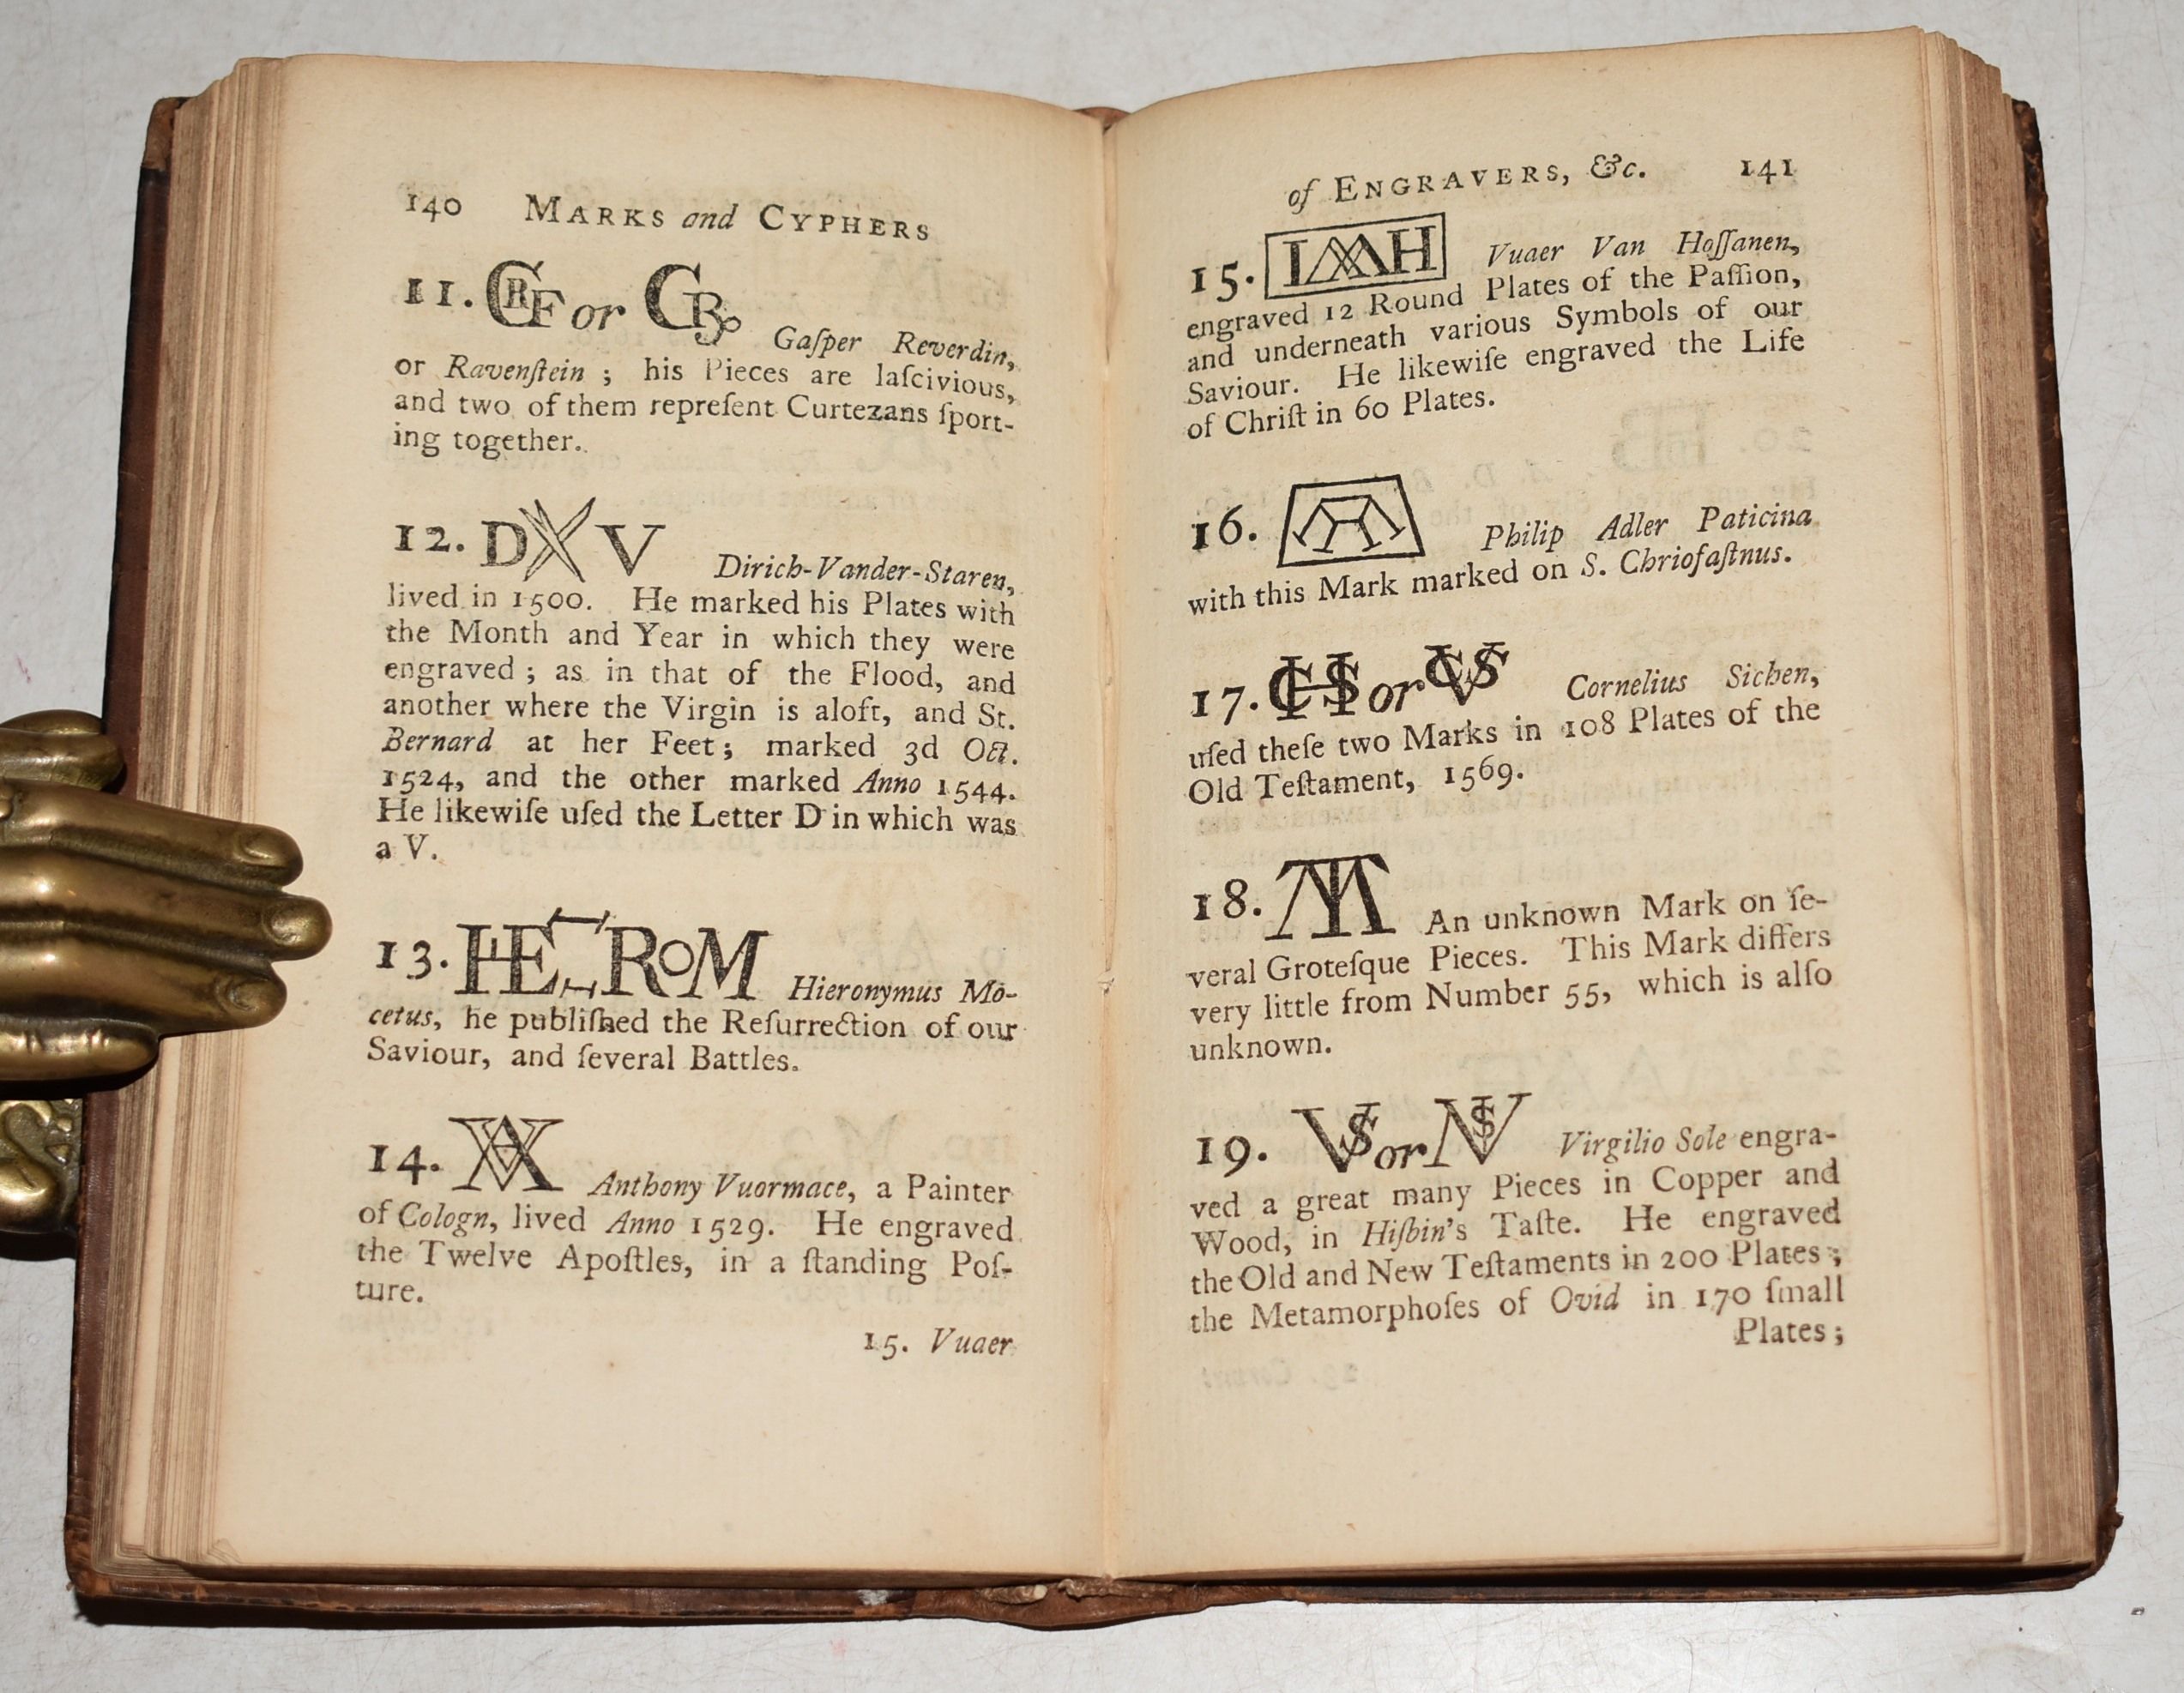 140 MARKS and CYPHERS
11. CRF or CB. Gaſper Reverdin,
or Ravenſtein ; his Pieces are laſcivious,
and two of them repreſent Curtezans ſport-
ing together.
12. D V Dirich-Vander-Staren,
lived in 1500. He marked his Plates with
the Month and Year in which they were
engraved ; as in that of the Flood, and
another where the Virgin is aloft, and St.
Bernard at her Feet ; marked 3d Oct.
1524, and the other marked Anno 1544.
He likewiſe uſed the Letter D in which was
a V.
13. Hieronymus Mo-
cetus, he publiſhed the Reſurrection of our
Saviour, and ſeveral Battles.
14. Anthony Vuormace, a Painter
of Cologn, lived Anno 1529. He engraved
the Twelve Apoſtles, in a ſtanding Poſ-
ture.
15. Vuaer
of ENGRAVERS, &c. 141
15. Vuaer Van Hoſſanen,
engraved 12 Round Plates of the Paſſion,
and underneath various Symbols of our
Saviour. He likewiſe engraved the Life
of Chriſt in 60 Plates.
16. Philip Adler Paticina
with this Mark marked on S. Chriofaſtnus.
17. or Cornelius Sichen,
uſed theſe two Marks in 108 Plates of the
Old Teſtament, 1569.
18. An unknown Mark on ſe-
veral Groteſque Pieces. This Mark differs
very little from Number 55, which is alſo
unknown.
19. VS or Virgilio Sole engra-
ved a great many Pieces in Copper and
Wood, in Hiſbin's Taſte. He engraved
the Old and New Teſtaments in 200 Plates ;
the Metamorphoſes of Ovid in 170 ſmall
Plates ;